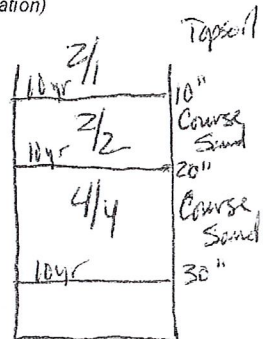 ation)
Topsoil
2/1
10yr 10"
2/2 Course Sand
10yr 20"
4/4 Course Sand
10yr 30"